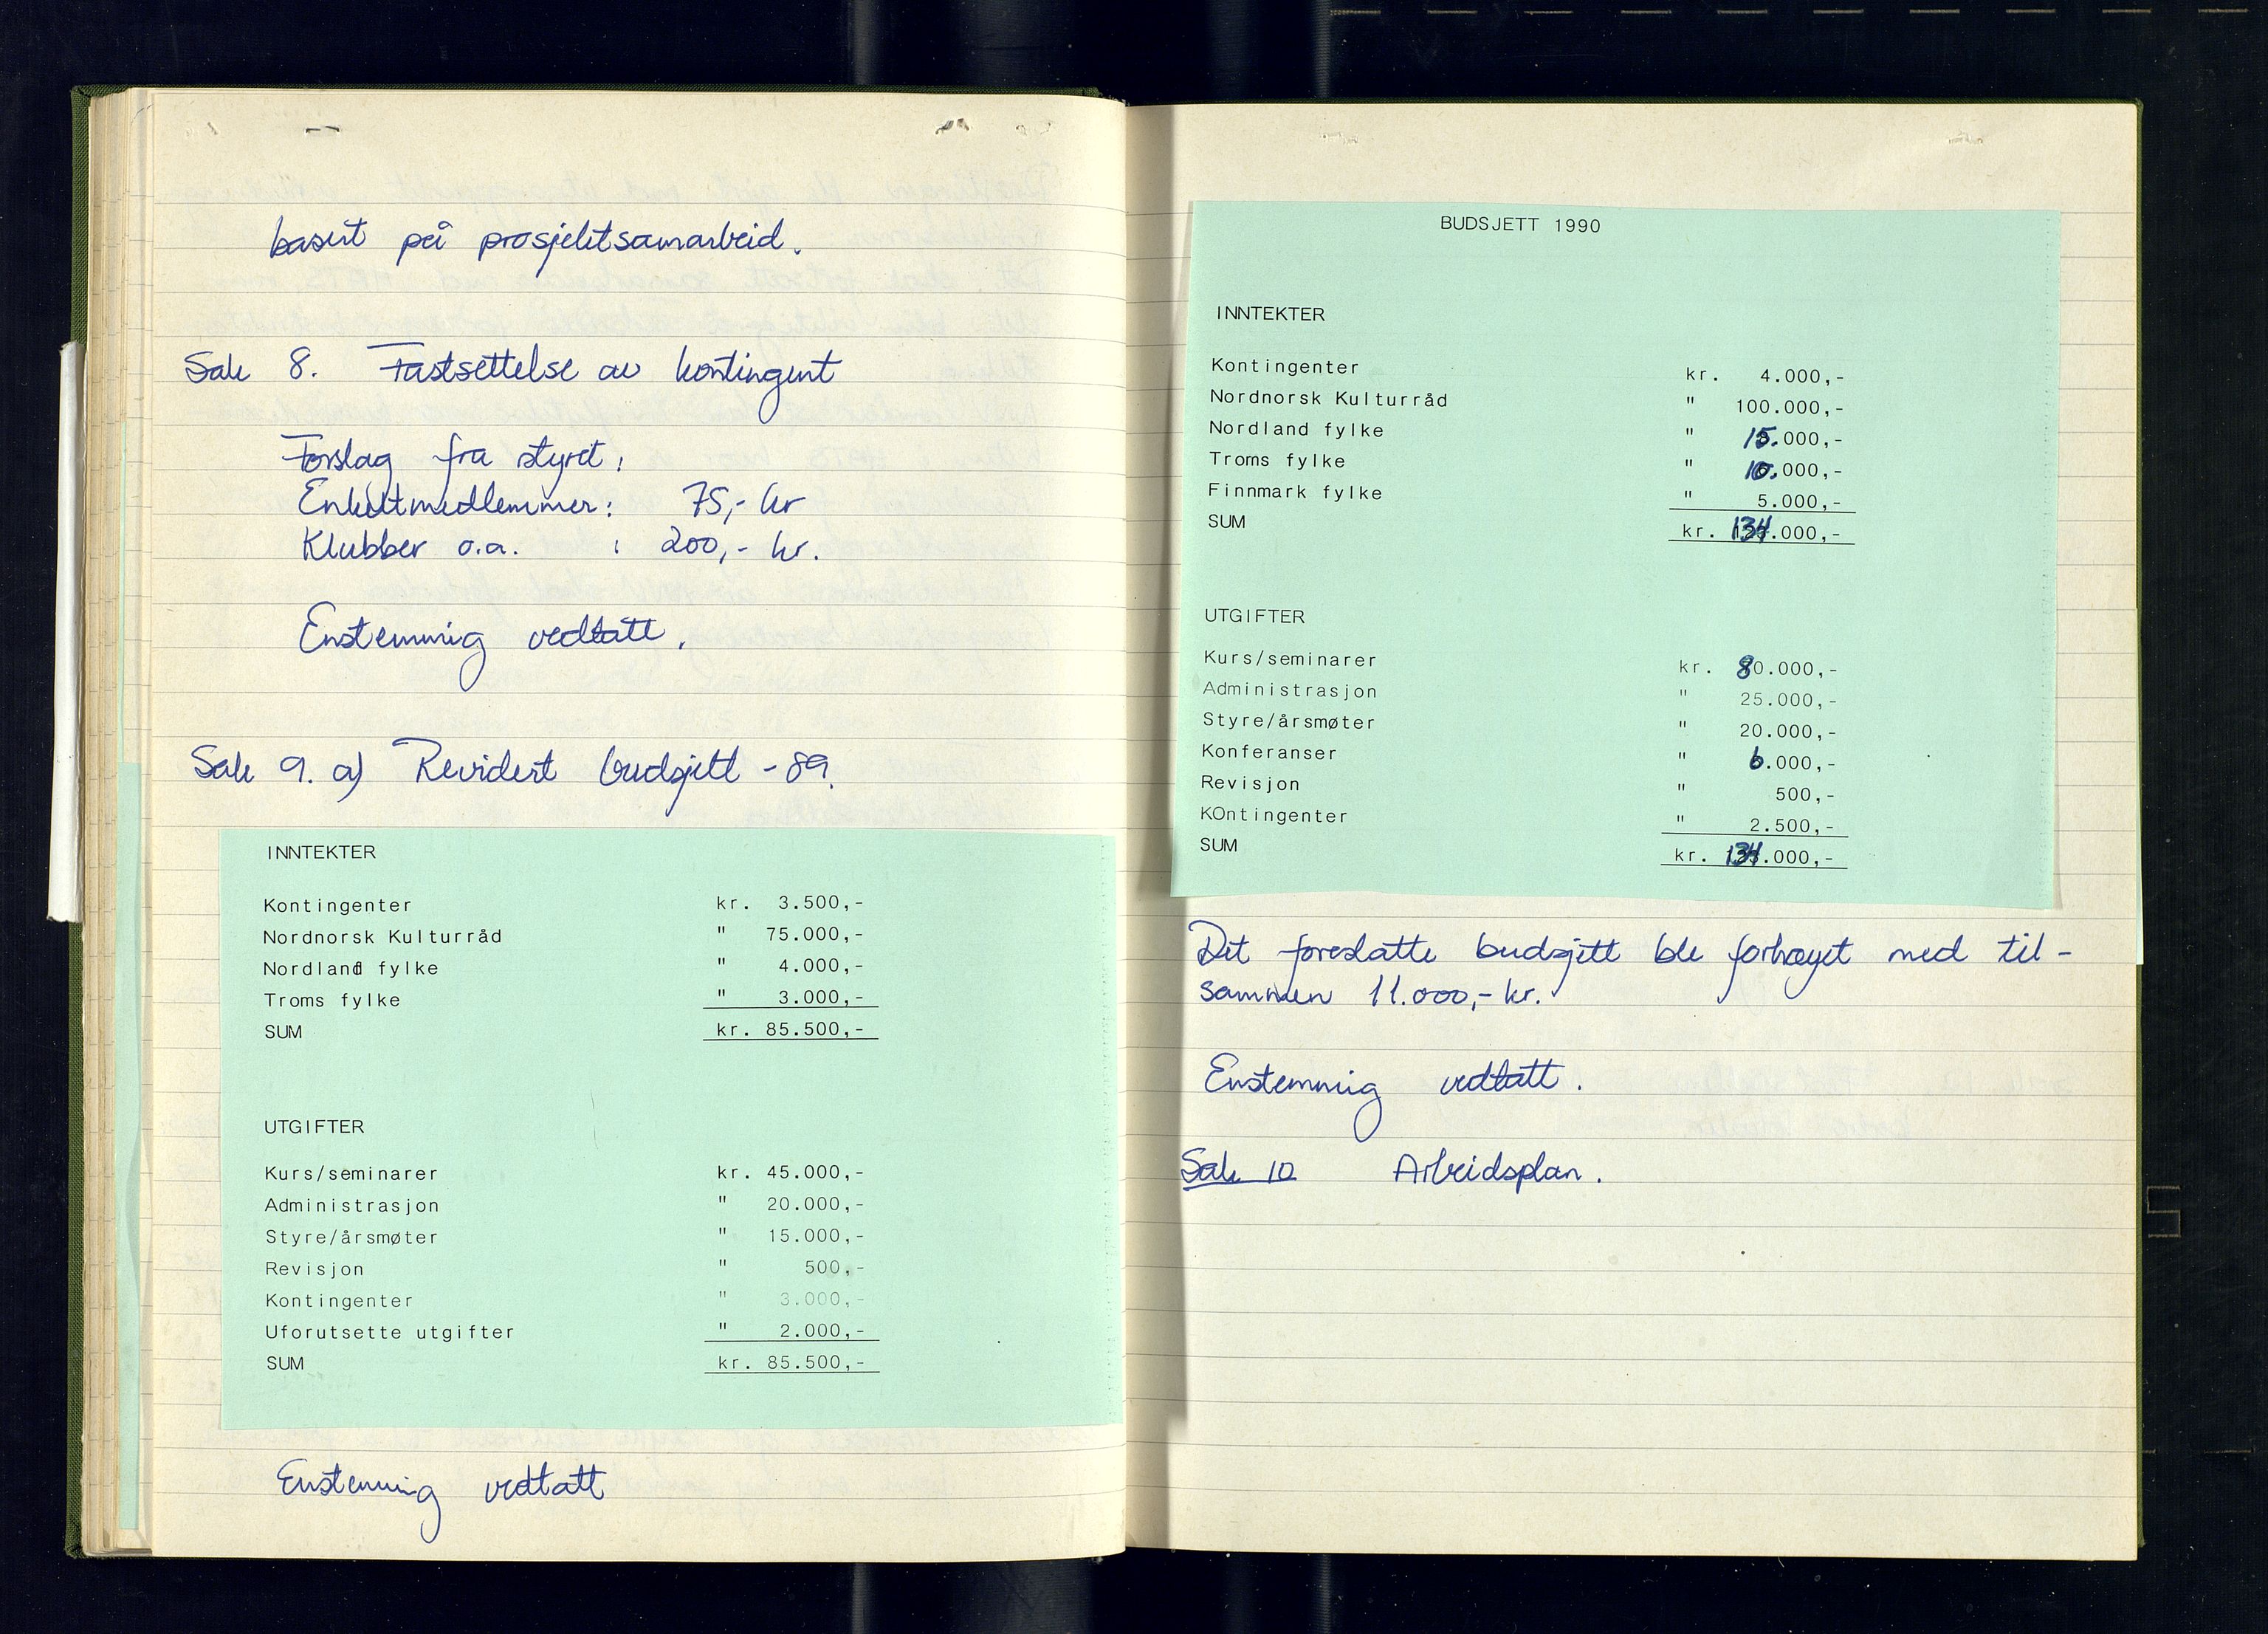 basert på prosjektsamarbeid.
Sak 8. Fastsettelse av kontingent
Forslag fra styret:
Enkeltmedlemmer: 75,- kr
Klubber o.a. : 200,- kr.
Enstemmig vedtatt.
Sak 9. a) Revidert budsjett -89.
INNTEKTER
Kontingenter kr. 3.500,-
Nordnorsk Kulturråd " 75.000,-
Nordland fylke " 4.000,-
Troms fylke " 3.000,-
SUM kr. 85.500,-
UTGIFTER
Kurs/seminarer kr. 45.000,-
Administrasjon " 20.000,-
Styre/årsmøter " 15.000,-
Revisjon " 500,-
Kontingenter " 3.000,-
Uforutsette utgifter " 2.000,-
SUM kr. 85.500,-
Enstemmig vedtatt
BUDSJETT 1990
INNTEKTER
Kontingenter kr. 4.000,-
Nordnorsk Kulturråd " 100.000,-
Nordland fylke " 15.000,-
Troms fylke " 10.000,-
Finnmark fylke " 5.000,-
SUM kr. 134.000,-
UTGIFTER
Kurs/seminarer kr. 80.000,-
Administrasjon " 25.000,-
Styre/årsmøter " 20.000,-
Konferanser " 6.000,-
Revisjon " 500,-
KOntingenter " 2.500,-
SUM kr. 134.000,-
Det foreslåtte budsjett ble forhøyet med til-
sammen 11.000,- kr.
Enstemmig vedtatt.
Sak 10 Arbeidsplan.